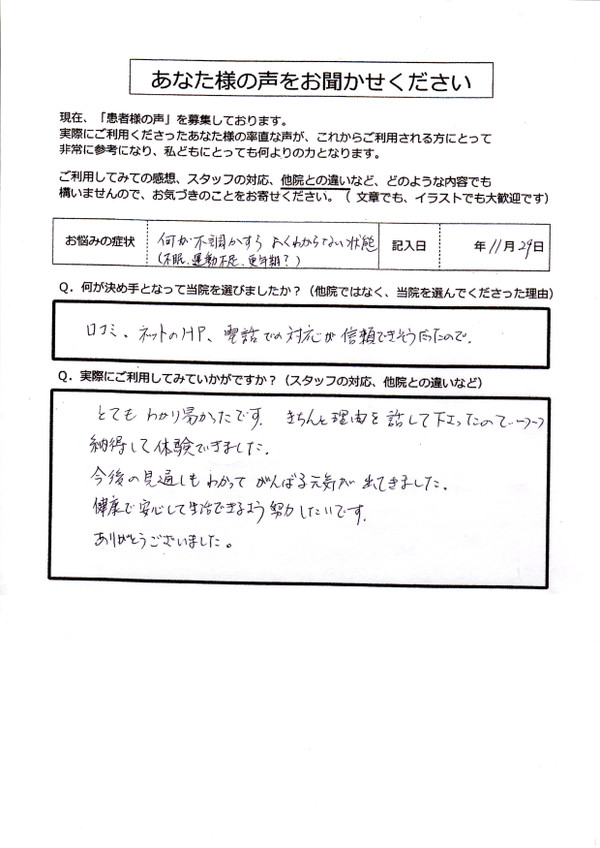 あなた様の声をお聞かせください
現在、「患者様の声」を募集しております。
実際にご利用くださったあなた様の率直な声が、これからご利用される方にとって
非常に参考になり、私どもにとっても何よりの力となります。
ご利用してみての感想、スタッフの対応、他院との違いなど、どのような内容でも
構いませんので、お気づきのことをお寄せください。（ 文章でも、イラストでも大歓迎です）
お悩みの症状 何が不調かすらよくわからない状態 記入日 年 11月29日
(不眠、運動不足、更年期?)
Q．何が決め手となって当院を選びましたか？（他院ではなく、当院を選んでくださった理由）
口コミ、ネットのHP、電話での対応が信頼できそうだったので。
Q．実際にご利用してみていかがですか？（スタッフの対応、他院との違いなど）
とてもわかり易かったです。きちんと理由を話して下さったので一つ一つ
納得して体験できました。
今後の見通しもわかってがんばる元気が出てきました。
健康で安心して生活できるよう努力したいです。
ありがとうございました。